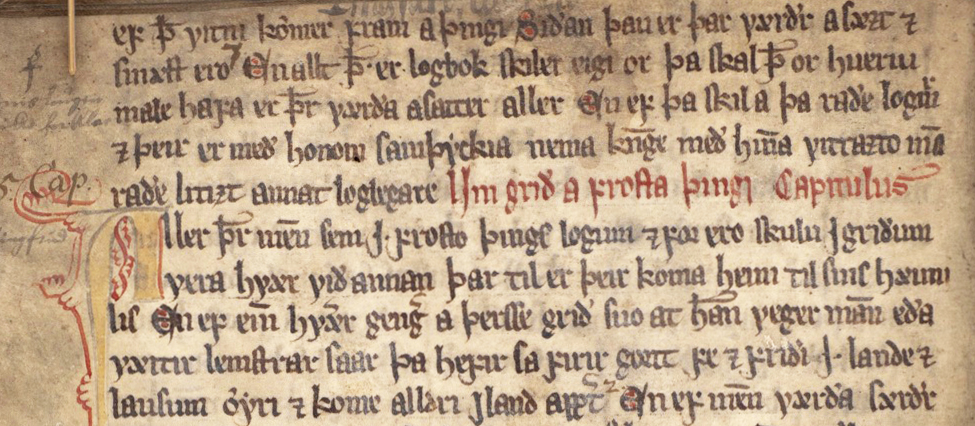 ef þ̅ vitni kømer fram a þingi Siðan þau er þar værðr a sæzt ⁊
smætt ero En allt þ̅ er logbok skiler eigi or þa skal þ̅ or hueriu
male hafa er þr̅ værða asatter aller En ef þa skil a þa raðe logm̅
⁊ þeir er með honom samþyckia nema kn̅ge með hin̅a vitrazto m̅a
raðe litizt annat loglegare Um grið a frosta þingi Capitulus
5 Cap.
Aller þr̅ men̅ sem j frosto þings logum ⁊ for ero skulu j griðum
vera hvær við annan þar til er þeir koma heim til sins hæimi
lis En ef ein̅ hvær gengr a þersse grið suo at han̅ veger man̅ eða
væitir lemstrar saar þa hefir sa firir gort fe ⁊ friði j lande ⁊
lausum øyri ⁊ kome alldri j land aptr En ef men̅ værða særðr